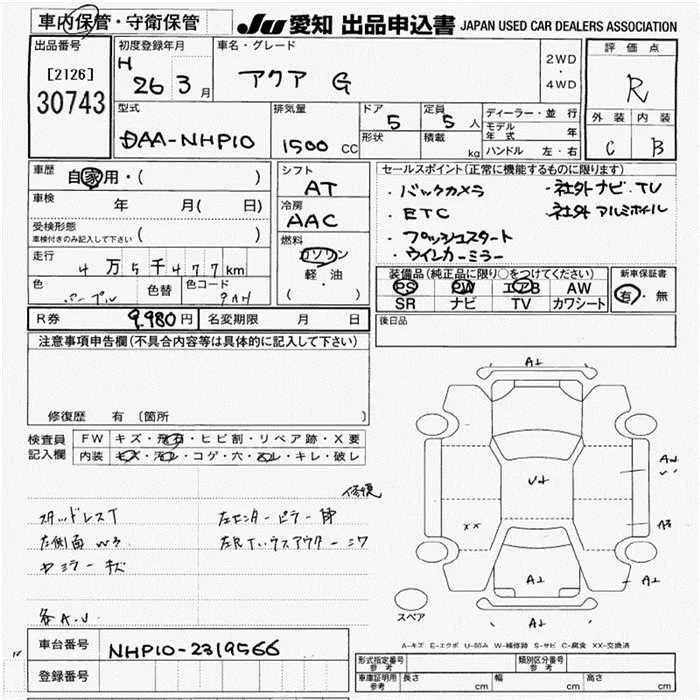 車内保管・守衛保管
JU 愛知 出品申込書 JAPAN USED CAR DEALERS ASSOCIATION
出品番号
[2126]
30743
初度登録年月
H 26 3月
車名・グレード
アクア G
2WD
・
4WD
評価点
R
外装 内装
C B
型式
DAA-NHP10
排気量
1500 CC
ドア
5
定員
5人
形状
積載
kg
ディーラー・並行
モデル年式 年
ハンドル 左・右
車歴 自家用・( )
車検 年 月( 日)
受検形態
車検付きのみ記入して下さい ( )
走行 4万5千477km
色 パープル 色替 色コード 9AH
シフト
AT
冷房
AAC
燃料
ガソリン
軽・油
( ・ )
セールスポイント(正常に機能するものに限ります)
・バックカメラ ・社外ナビ.TV
・ETC ・社外アルミホイル
・プッシュスタート
・ウインカーミラー
装備品(純正品に限り○をつけてください)
PS PW エアB AW
SR ナビ TV カワシート
新車保証書
有・無
R券 9,980円 名変期限 月 日
後日品
注意事項申告欄(不具合内容等は具体的に記入して下さい)
修復歴 有 〔箇所
検査員記入欄
FW キズ・飛石・ヒビ割・リペア跡・X要
内装 キズ・汚レ・コゲ・穴・スレ・キレ・破レ
修復
スタッドレスT
左側面 W3
ヤミラーキズ
各A.U
左センターピラー
A1
U1
XX
A1
A1
A1
スペア
A-キズ E-エクボ U-凹み W-補修跡 S-サビ C-腐食 XX-交換済
車台番号 NHP10-2319566
登録番号
形式指定番号
参考
類別区分番号
参考
車庫証明用
参考
長さ cm 幅 cm 高さ cm